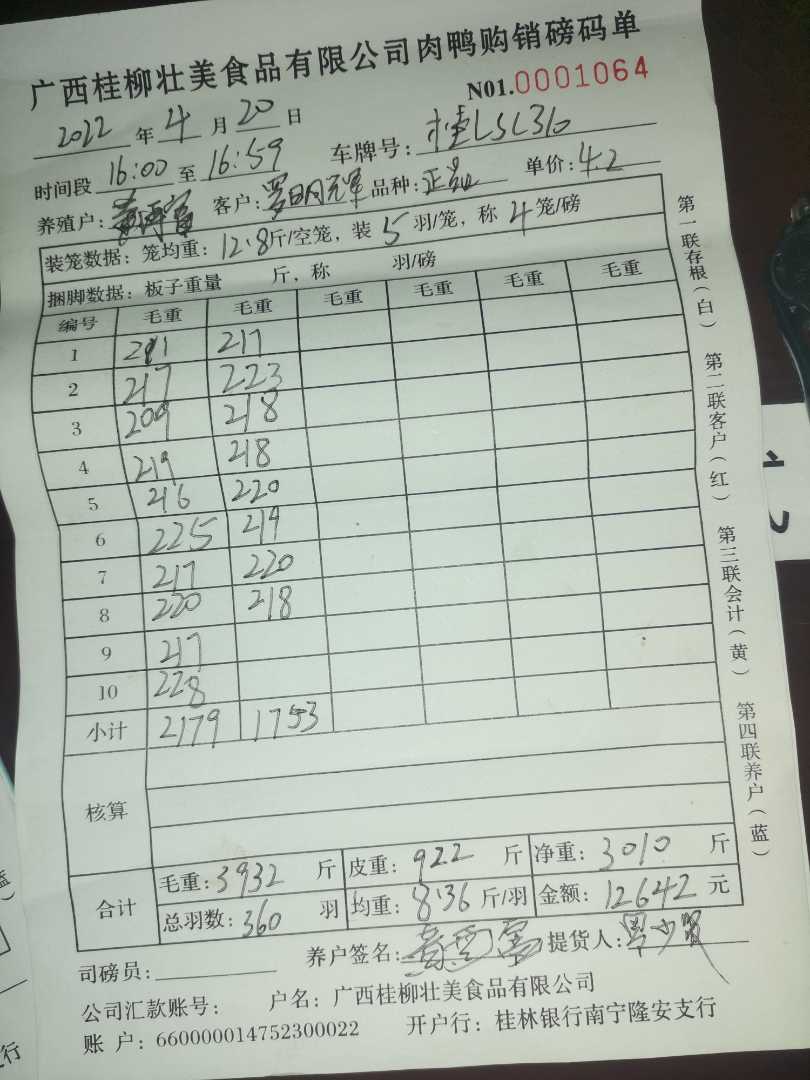 广西桂柳壮美食品有限公司肉鸭购销磅码单
N01.0001064
2022年4月20日
时间段 16:00 至 16:59 车牌号: 桂LSL310
养殖户: 客户: 罗明辉 品种: 单价: 4.2
装笼数据: 笼均重: 12.8斤/空笼, 装 5 羽/笼, 称 4 笼/磅
捆脚数据: 板子重量 斤, 称 羽/磅
编号 毛重 毛重 毛重 毛重 毛重 毛重
1 211 217
2 217 223
3 209 218
4 219 218
5 216 220
6 225 219
7 217 220
8 220 218
9 217
10 228
小计 2179 1753
核算
合计 毛重: 3932 斤 皮重: 922 斤 净重: 3010 斤
总羽数: 360 羽 均重: 8.36 斤/羽 金额: 12642 元
司磅员: 养户签名: 提货人:
公司汇款账号: 户名: 广西桂柳壮美食品有限公司
账 户: 660000014752300022 开户行: 桂林银行南宁隆安支行
第一联存根(白) 第二联客户(红) 第三联会计(黄) 第四联养户(蓝)